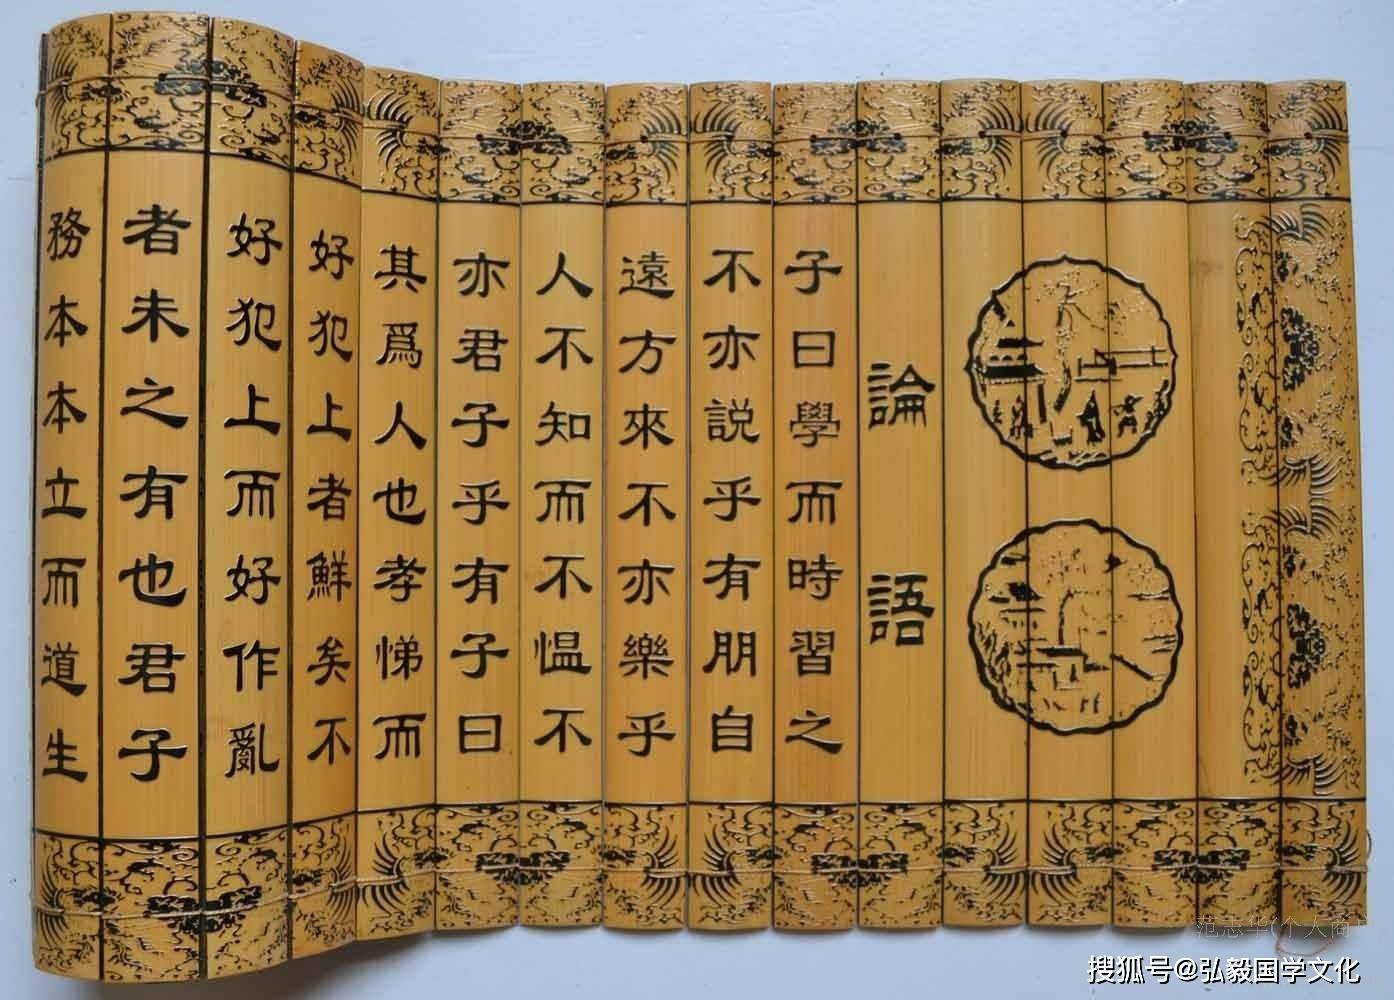 論語
子曰學而時習之
不亦説乎有朋自
遠方來不亦樂乎
人不知而不愠不
亦君子乎有子曰
其爲人也孝悌而
好犯上者鮮矣不
好犯上而好作亂
者未之有也君子
務本本立而道生
范志华(个人商)
搜狐号@弘毅国学文化